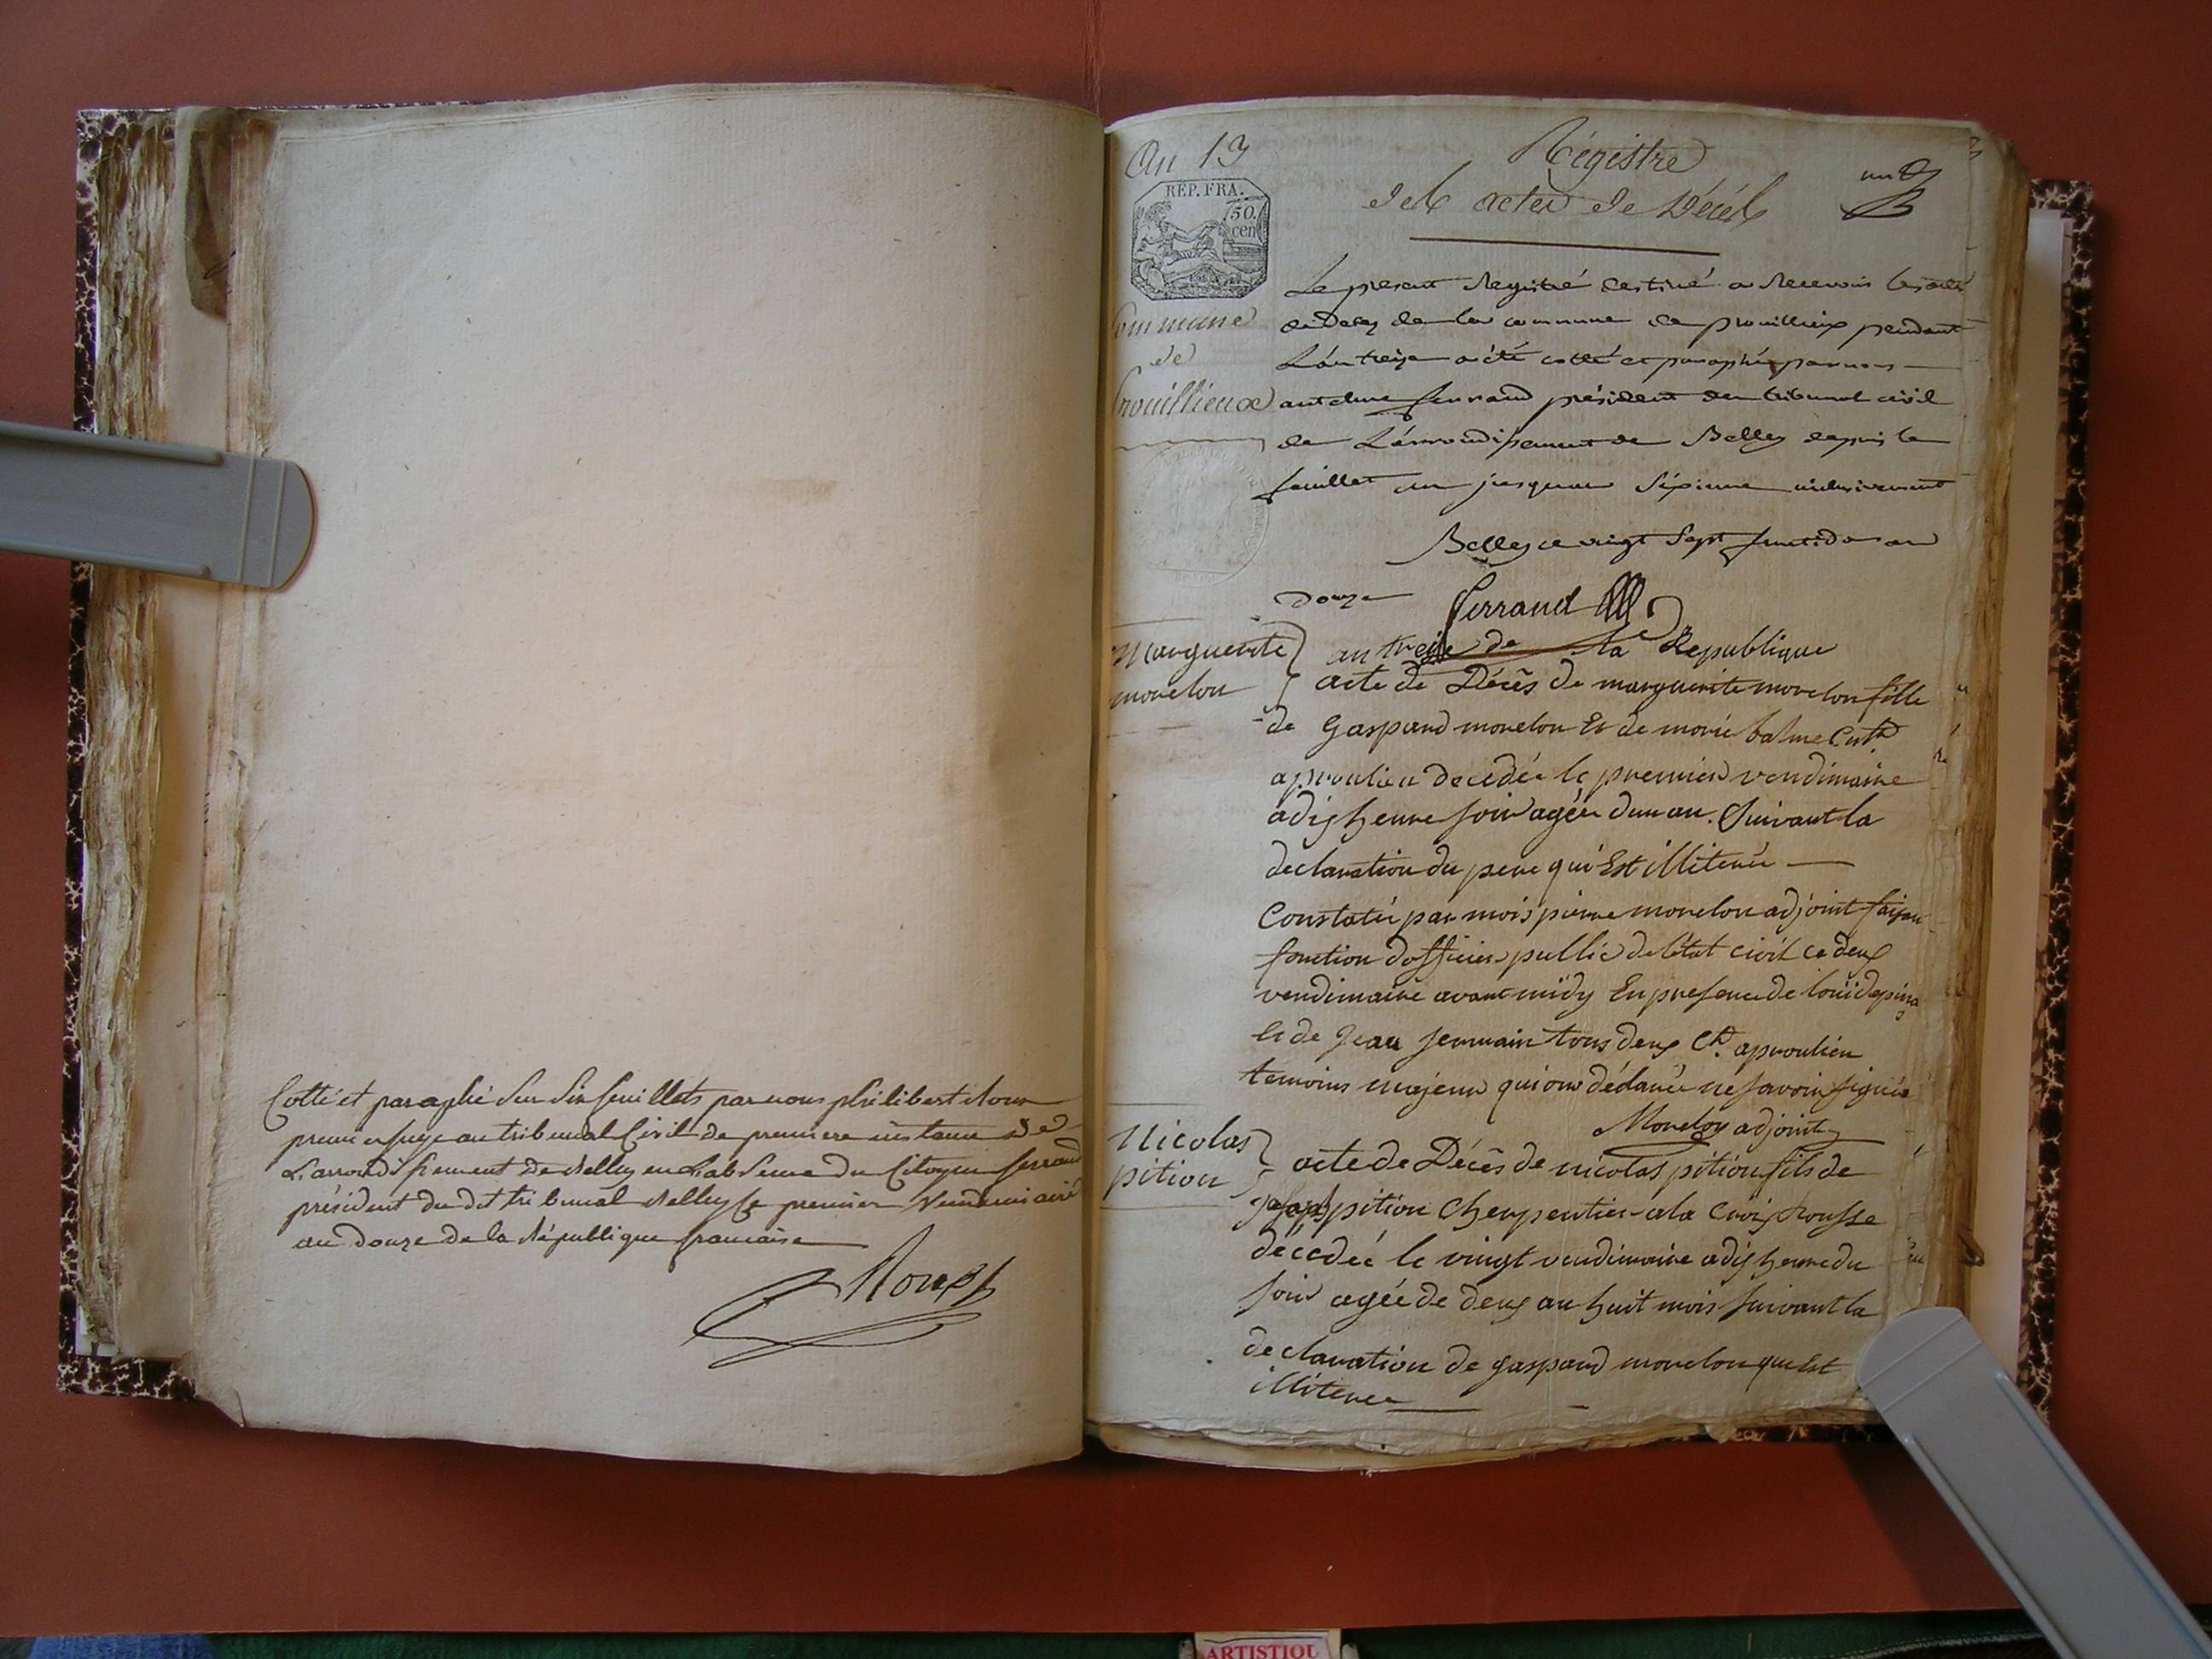 Cotté et paraphé Sur Six feuillets par nous philibert
premier juge au tribunal Civil de premiere instance de
L'arrondissement de Belley en L'absence du Citoyen ferrand
président du dit tribunal Belley le premier Vendemiaire
an douze de la République francaise
An 13
REP. FRA.
50.
cen
Commune
de
Prouillieux
Régistre
des actes de Décés
un
Le présent Registre destiné a Recevoir les actes
de Deces de la commune de prouillieux pendant
L'an treize a été cotté et paraphé par nous
antelme ferrand président du tribunal civil
de L'arrondissement de Belley depuis le
feuillet un jusqu'au Sixieme inclusivement
Belley ce vingt Sept fructidor an
douze
ferrand
Marguerite
morelon
an treize de la Republique
acte de Décès de marguerite morelon fille
de Gaspard morelon Et de marie balme Cult.
a proulieu decedée le premier vendimaire
a dix heure soir agée dun an. Suivant la
declaration du pere qui Est illiteréé
Constatée par mois pierre morelon adjoint faisan
fonction dofficier public de létat civil ce deux
vendimaire avant midy En presence de loüi
Et de Jean Jermain tous deux Ct. a proulieu
temoins majeur qui ont déclaréé ne savoir signéé
Morelon adjoint
Nicolas
pition
acte de Décès de nicolas pition fils de
pition Cherpentier a la Croix Rousse
décédéé le vingt vendimaire a dix heure du
soir agée de deux an huit mois suivant la
declaration de gaspard morelon qui Est
illiteréé
ARTISTIQU